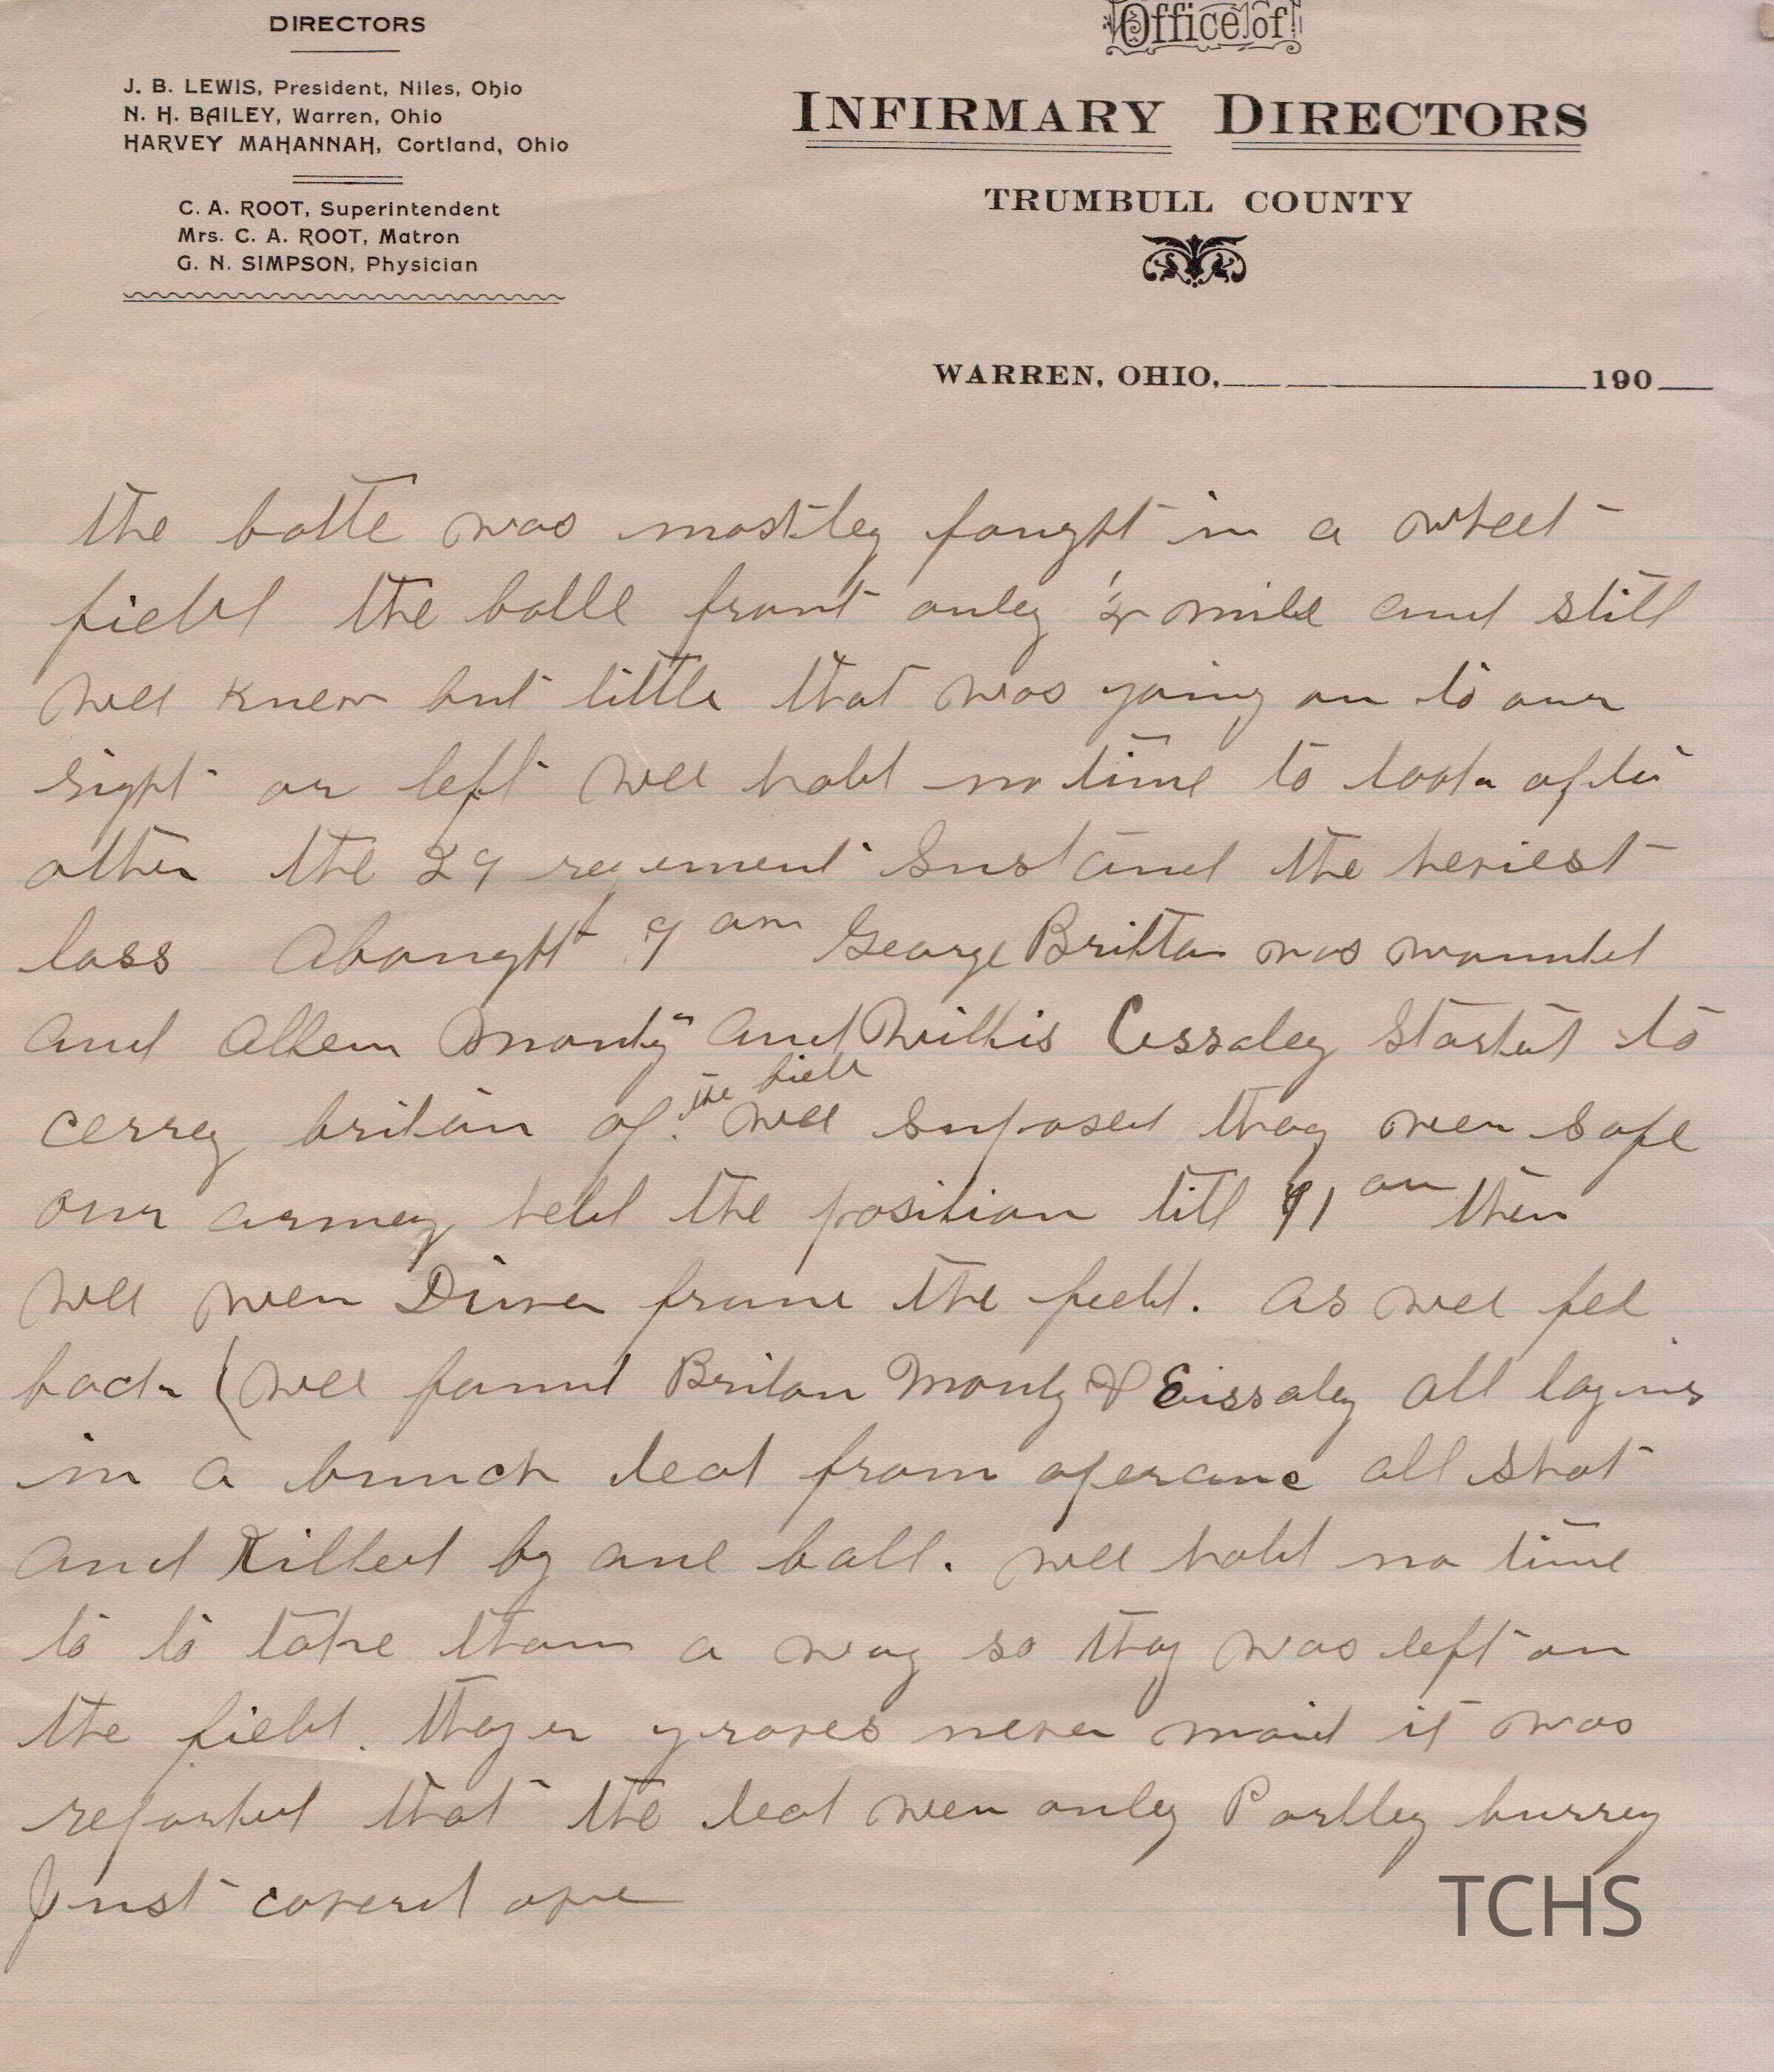 DIRECTORS
J. B. LEWIS, President, Niles, Ohio
N. H. BAILEY, Warren, Ohio
HARVEY MAHANNAH, Cortland, Ohio
C. A. ROOT, Superintendent
Mrs. C. A. ROOT, Matron
G. N. SIMPSON, Physician
Office of
INFIRMARY DIRECTORS
TRUMBULL COUNTY
WARREN, OHIO, 190
the batte was mostley fought in a wheet
field the battl front onley mile and still
wee knew but little that was going on to our
right or left wee hald no time to look after
other the 29 regement Sustaned the heviest
loss Abought 9 am George Britton was wounded
and Allen Monty and Willis Cessaley started to
the field
cerrey britain of. wee suposed thay weer safe
our armey held the position till 11 am then
wee weer Driven frome the field. as wee fel
back ( wee found Britan Monty & Eissaley all laying
in a bunch dead from aperance all shot
and Killed by one ball. wee hald no time
to to take tham a way so thay was left on
the field. thayer graves never maid it was
reported that the dead weer onley Partley burrey
Just covered ope
TCHS